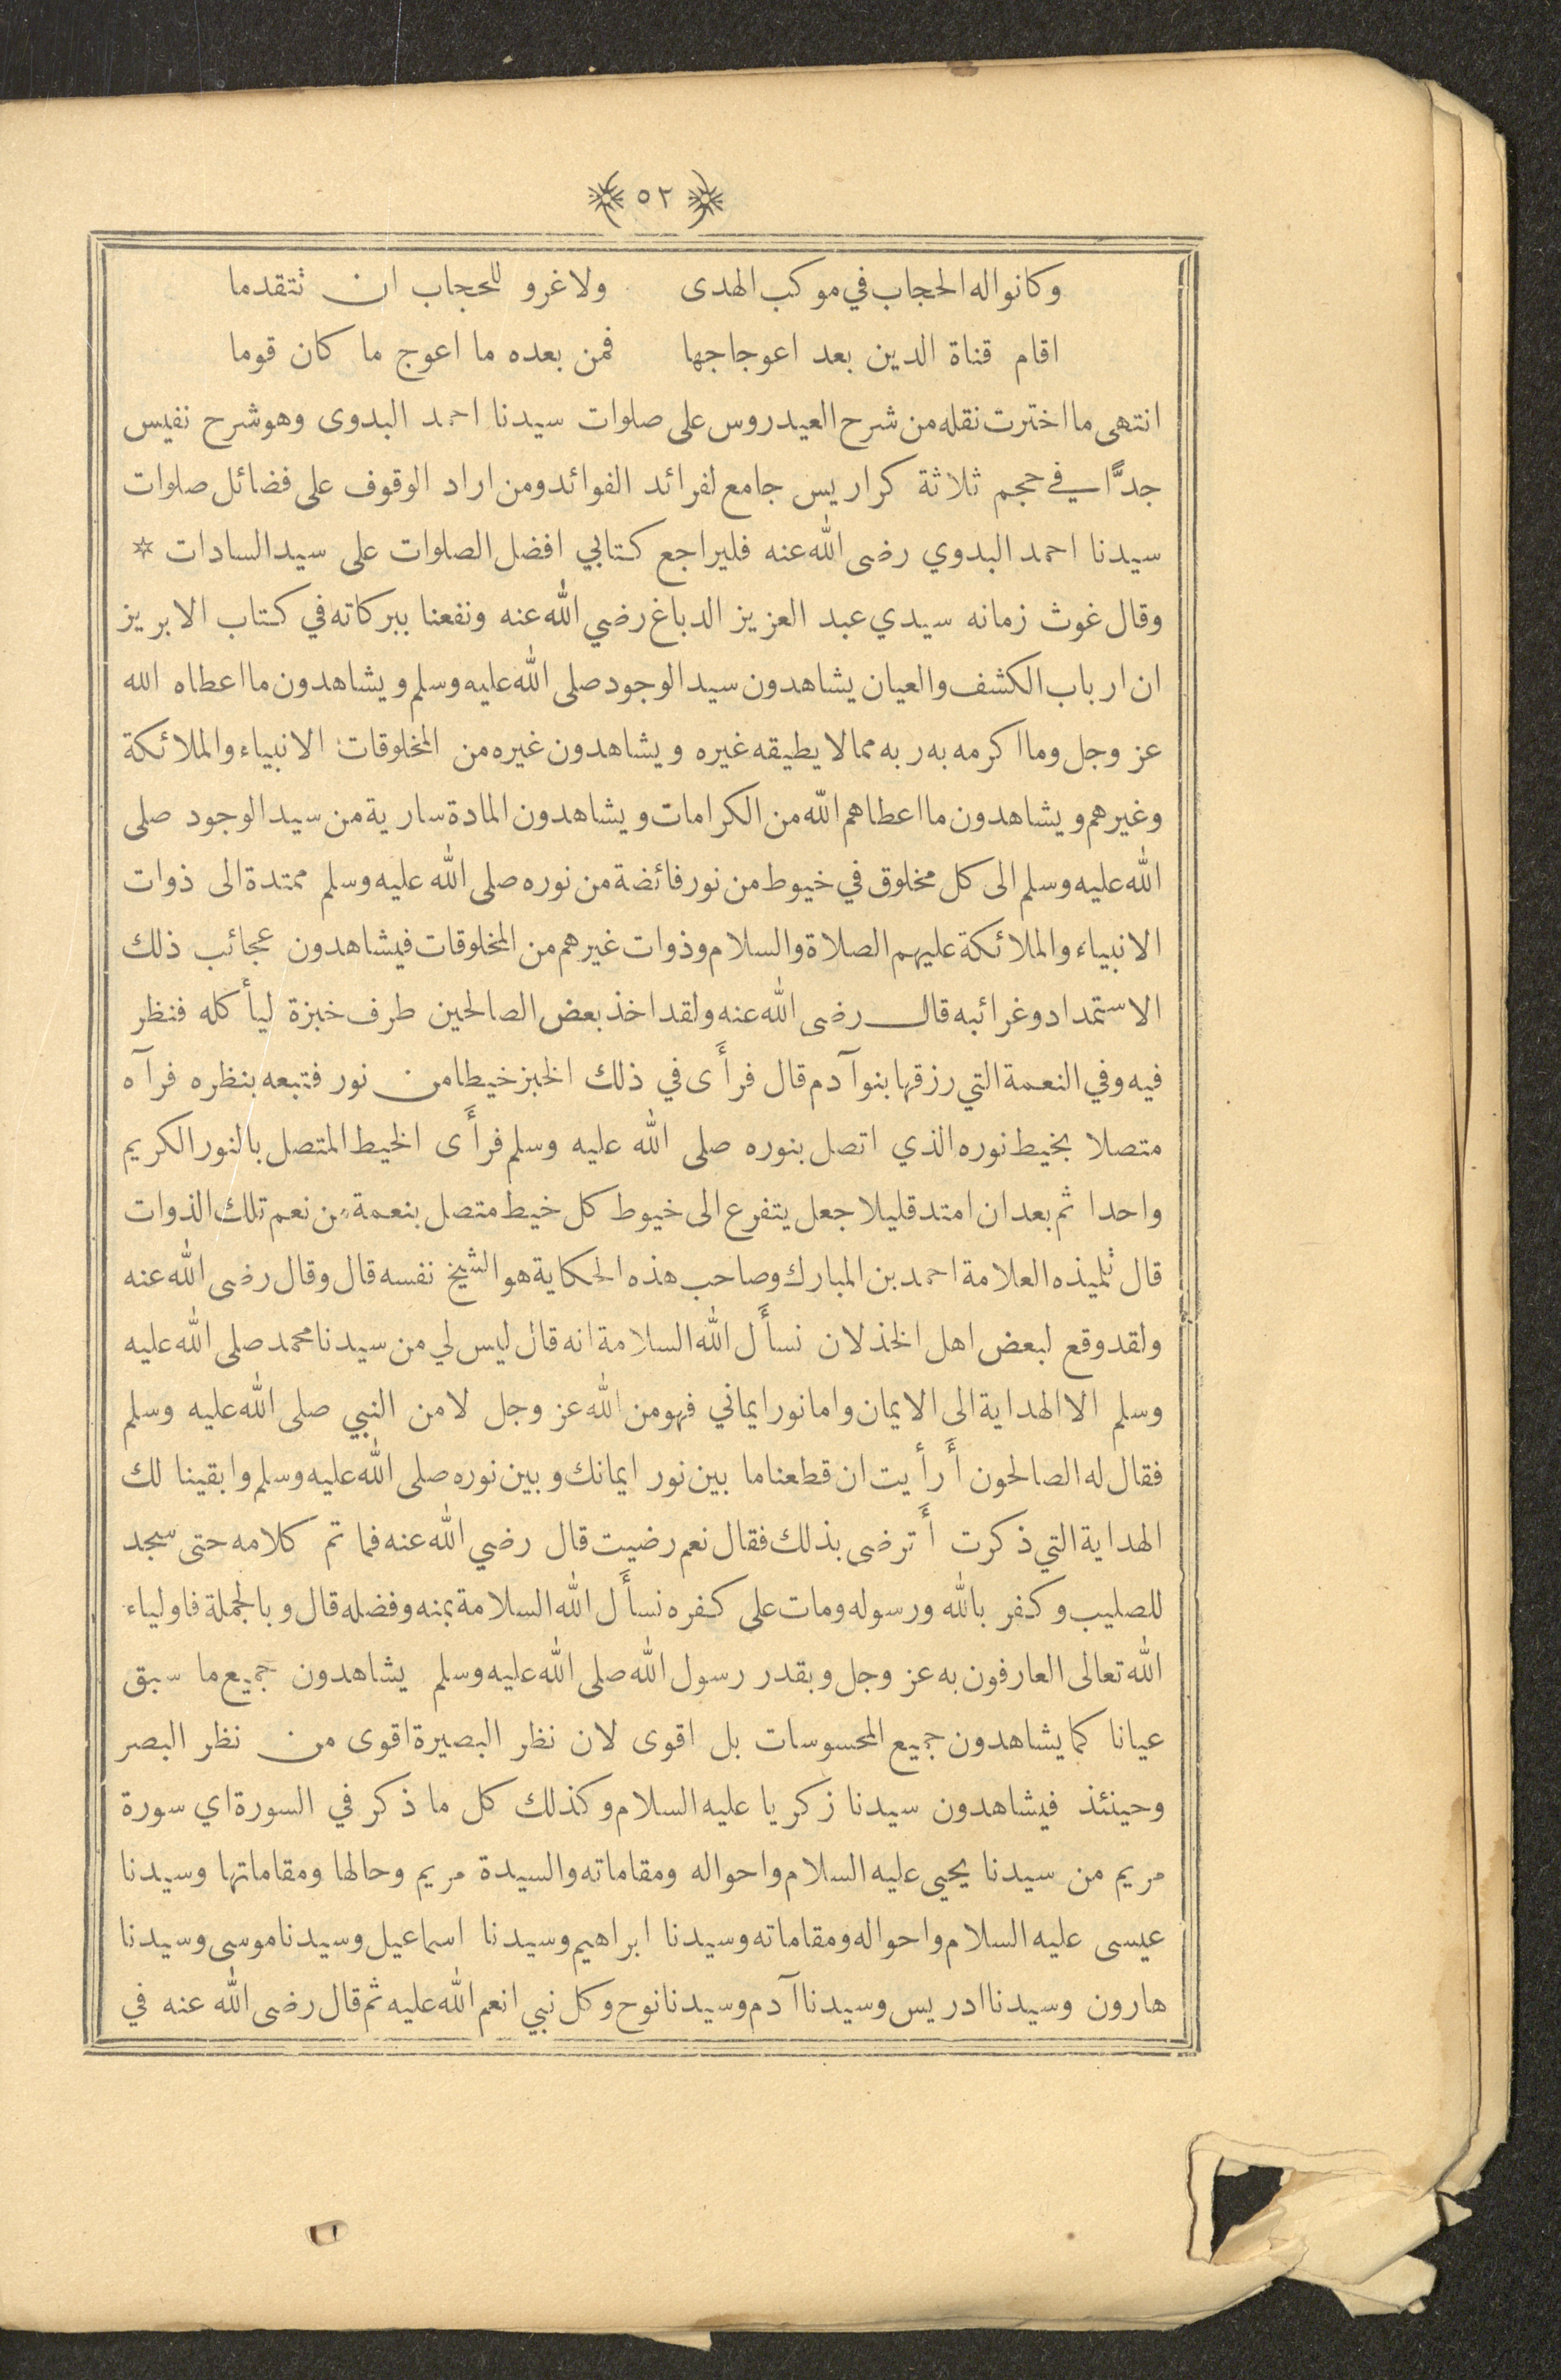 ٥٢
وكانوا له الحجاب في موكب الهدى ولا غرو للحجاب ان تتقدما
اقام قناة الدين بعد اعوجاجها فمن بعده ما اعوج ما كان قوما
انتهى ما اخترت نقله من شرح العيدروس على صلوات سيدنا احمد البدوى وهو شرح نفيس
جدًّا في حجم ثلاثة كراريس جامع لفرائد الفوائد ومن اراد الوقوف على فضائل صلوات
سيدنا احمد البدوي رضى الله عنه فليراجع كتابي افضل الصلوات على سيد السادات *
وقال غوث زمانه سيدي عبد العزيز الدباغ رضي الله عنه ونفعنا ببركاته في كتاب الابريز
ان ارباب الكشف والعيان يشاهدون سيد الوجود صلى الله عليه وسلم ويشاهدون ما اعطاه الله
عز وجل وما اكرمه به ربه مما لا يطيقه غيره ويشاهدون غيره من المخلوقات الانبياء والملائكة
وغيرهم ويشاهدون ما اعطاهم الله من الكرامات ويشاهدون المادة سارية من سيد الوجود صلى
الله عليه وسلم الى كل مخلوق في خيوط من نور فائضة من نوره صلى الله عليه وسلم ممتدة الى ذوات
الانبياء والملائكة عليهم الصلاة والسلام وذوات غيرهم من المخلوقات فيشاهدون عجائب ذلك
الاستمداد وغرائبه قال رضى الله عنه ولقد اخذ بعض الصالحين طرف خبزة ليأكله فنظر
فيه وفي النعمة التي رزقها بنو آدم قال فرأَى في ذلك الخبز خيطا من نور فتبعه بنظره فرآه
متصلا بخيط نوره الذي اتصل بنوره صلى الله عليه وسلم فرأَى الخيط المتصل بالنور الكريم
واحدا ثم بعد ان امتد قليلا جعل يتفرع الى خيوط كل خيط متصل بنعمة من نعم تلك الذوات
قال تلميذه العلامة احمد بن المبارك وصاحب هذه الحكاية هو الشيخ نفسه قال وقال رضى الله عنه
ولقد وقع لبعض اهل الخذلان نسأَل الله السلامة انه قال ليس لي من سيدنا محمد صلى الله عليه
وسلم الا الهداية الى الايمان واما نور ايماني فهو من الله عز وجل لا من النبي صلى الله عليه وسلم
فقال له الصالحون أَرأيت ان قطعنا ما بين نور ايمانك وبين نوره صلى الله عليه وسلم وابقينا لك
الهداية التي ذكرت أَترضى بذلك فقال نعم رضيت قال رضي الله عنه فما تم كلامه حتى سجد
للصليب وكفر بالله ورسوله ومات على كفره نسأَل الله السلامة بمنه وفضله قال وبالجملة فاولياء
الله تعالى العارفون به عز وجل وبقدر رسول الله صلى الله عليه وسلم يشاهدون جميع ما سبق
عيانا كما يشاهدون جميع المحسوسات بل اقوى لان نظر البصيرة اقوى من نظر البصر
وحينئذ فيشاهدون سيدنا زكريا عليه السلام وكذلك كل ما ذكر في السورة اي سورة
مريم من سيدنا يحيى عليه السلام واحواله ومقاماته والسيدة مريم وحالها ومقاماتها وسيدنا
عيسى عليه السلام واحواله ومقاماته وسيدنا ابراهيم وسيدنا اسماعيل وسيدنا موسى وسيدنا
هارون وسيدنا ادريس وسيدنا آدم وسيدنا نوح وكل نبي انعم الله عليه ثم قال رضى الله عنه في